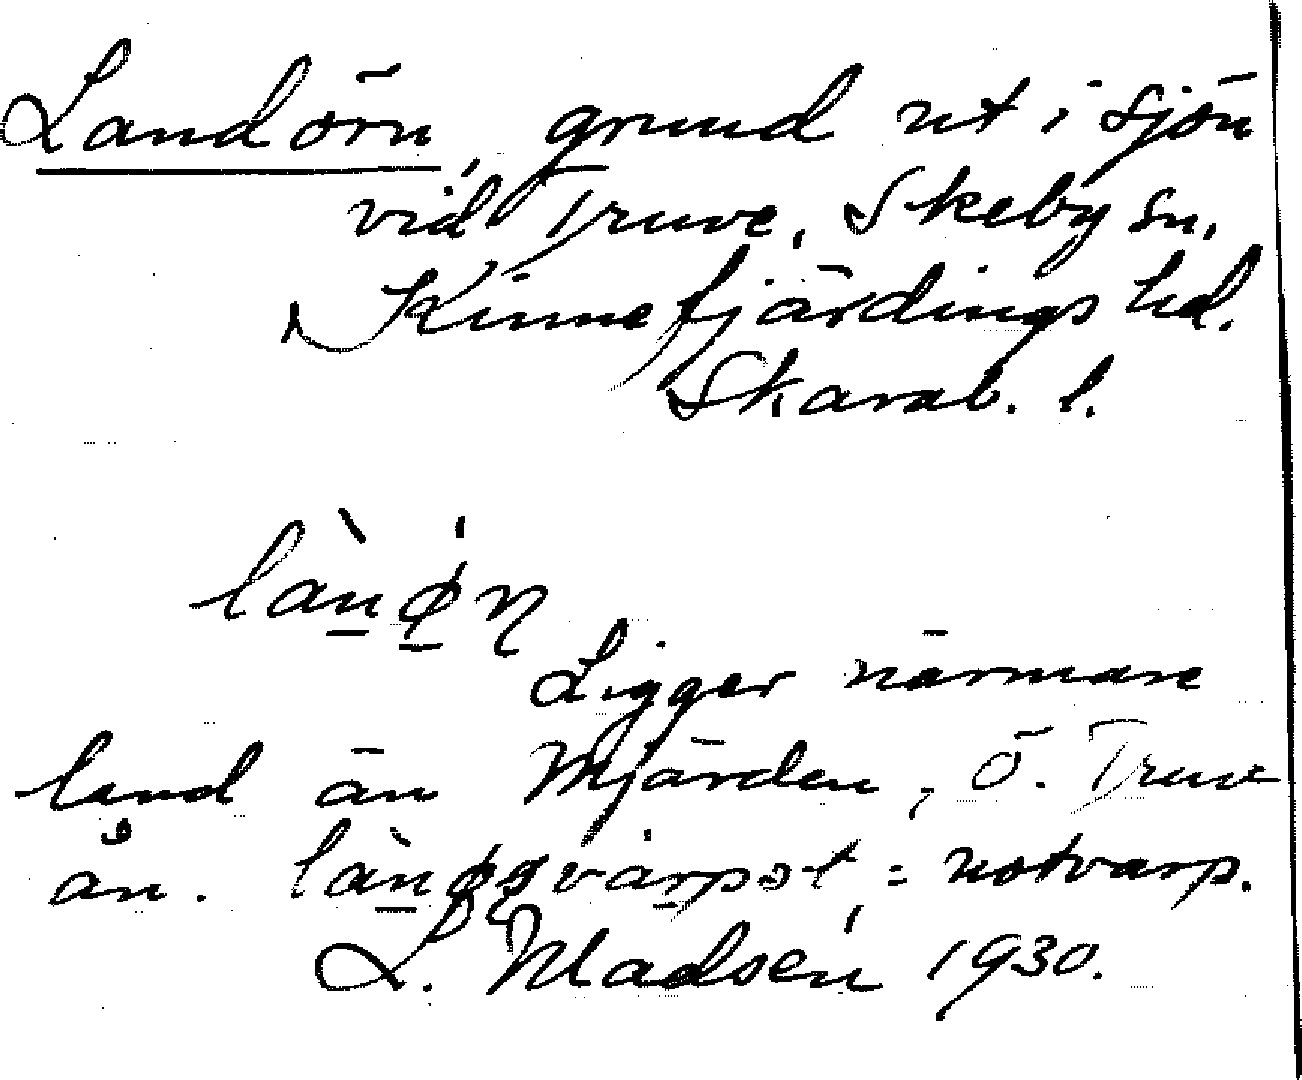 Landörn, grund ut i sjön
vid Truve, Skeby sn,
Kinnefjärdings hd.
Skarab. l.
Ligger närmare
land än Mjärden, ö. Truve
ån. = notvarp.
L. Madsén 1930.